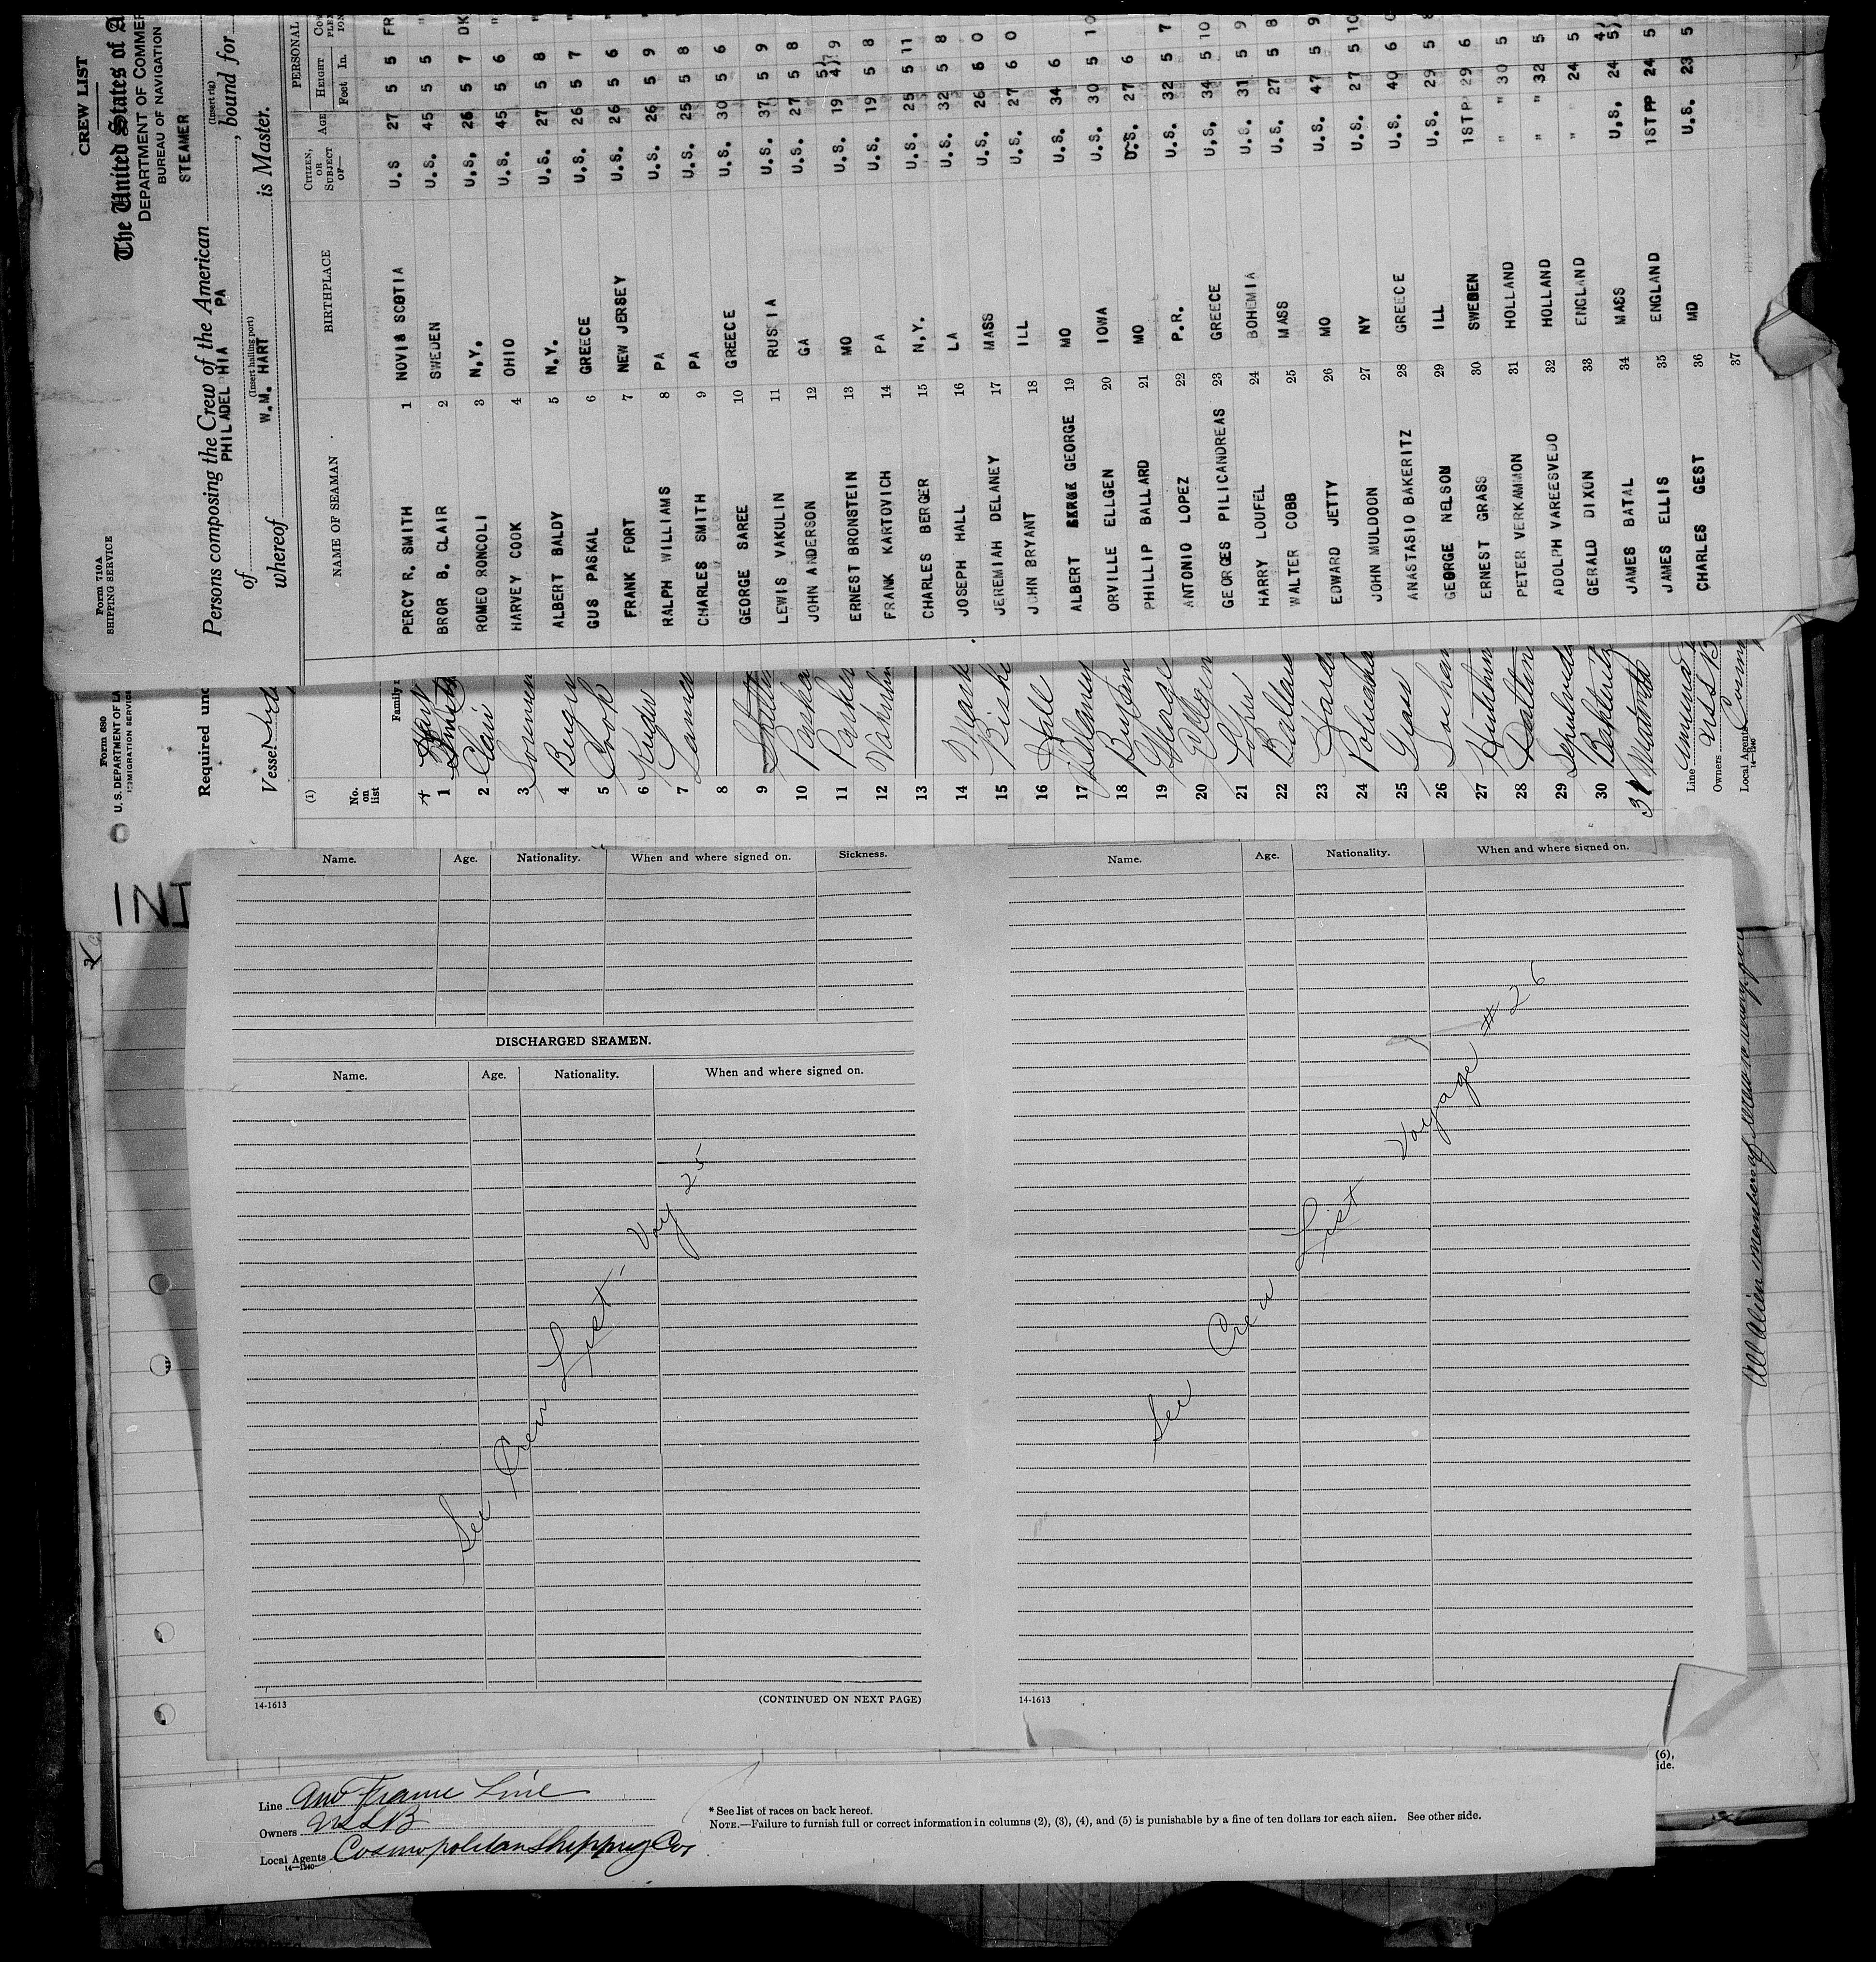 Form 710A
SHIPPING SERVICE
CREW LIST
The United States of A
DEPARTMENT OF COMMER
BUREAU OF NAVIGATION
STEAMER
Persons composing the Crew of the American
(Insert rig)
of PHILADEL HIA PA , bound for
(Insert hailing port)
whereof W.M. HART is Master.
PERSONAL
NAME OF SEAMAN BIRTHPLACE CITIZEN, OR SUBJECT OF— AGE HEIGHT Feet In. COM PLEX ION
PERCY R. SMITH 1 NOVIS SCOTIA U.S 27 5 5 FR
BROR B. CLAIR 2 SWEDEN U.S. 45 5 5 "
ROMEO RONCOLI 3 N.Y. U.S. 26 5 7 DK
HARVEY COOK 4 OHIO U.S. 45 5 6 "
ALBERT BALDY 5 N.Y. U.S. 27 5 8 "
GUS PASKAL 6 GREECE U.S. 26 5 7 "
FRANK FORT 7 NEW JERSEY U.S. 26 5 6
RALPH WILLIAMS 8 PA U.S. 26 5 9
CHARLES SMITH 9 PA U.S. 25 5 8
GEORGE SAREE 10 GREECE U.S. 30 5 6
LEWIS VAKULIN 11 RUSSIA U.S. 37 5 9
JOHN ANDERSON 12 GA U.S. 27 5 8
ERNEST BRONSTEIN 13 MO U.S. 19 9
FRANK KARTOVICH 14 PA U.S. 19 5 8
CHARLES BERGER 15 N.Y. U.S. 25 5 11
JOSEPH HALL 16 LA U.S. 32 5 8
JEREMIAH DELANEY 17 MASS U.S. 26 6 0
JOHN BRYANT 18 ILL U.S. 27 6 0
ALBERT GEORGE 19 MO U.S. 34 6
ORVILLE ELLGEN 20 IOWA U.S. 30 5 10
PHILLIP BALLARD 21 MO U.S. 27 6
ANTONIO LOPEZ 22 P.R. U.S. 32 5 7
GEORGES PILICANDREAS 23 GREECE U.S. 34 5 10
HARRY LOUFEL 24 BOHEMIA U.S. 31 5 9
WALTER COBB 25 MASS U.S. 27 5 8
EDWARD JETTY 26 MO U.S. 47 5 9
JOHN MULDOON 27 NY U.S. 27 5 10
ANASTASIO BAKERITZ 28 GREECE U.S. 40 6
GEORGE NELSON 29 ILL U.S. 29 5
ERNEST GRASS 30 SWEDEN 1STP 29 6
PETER VERKAMMON 31 HOLLAND " " 30 5
ADOLPH VAREESVEDO 32 HOLLAND " " 32 5
GERALD DIXON 33 ENGLAND " 24 5
JAMES BATAL 34 MASS U.S. 24
JAMES ELLIS 35 ENGLAND 1STPP 24 5
CHARLES GEST 36 MD U.S. 23 5
37
Form 680
U. S. DEPARTMENT OF LA
IMMIGRATION SERVICE
Required und
Vessel
(1)
No. on list
Family n
1
2 Clair
3
4
5 Cook
6
7
8
9
10
11
12
13
14
15
16 Hall
17 Delaney
18
19 George
20
21
22 Ballar
23
24
25
26
27
28
29
30
31
Line
Owners USSB
Local Agents
14—1240
INI
Name. Age. Nationality. When and where signed on. Sickness.
DISCHARGED SEAMEN.
Name. Age. Nationality. When and where signed on.
See Crew List - Voy 25
14-1613
(CONTINUED ON NEXT PAGE)
Name. Age. Nationality. When and where signed on.
See Crew List Voyage #26
14-1613
All Alien members of
(6),
ide.
Line Am France Line
Owners USSB
Local Agents Cosmopolitan Shipping Co
14—1240
* See list of races on back hereof.
NOTE.—Failure to furnish full or correct information in columns (2), (3), (4), and (5) is punishable by a fine of ten dollars for each alien. See other side.